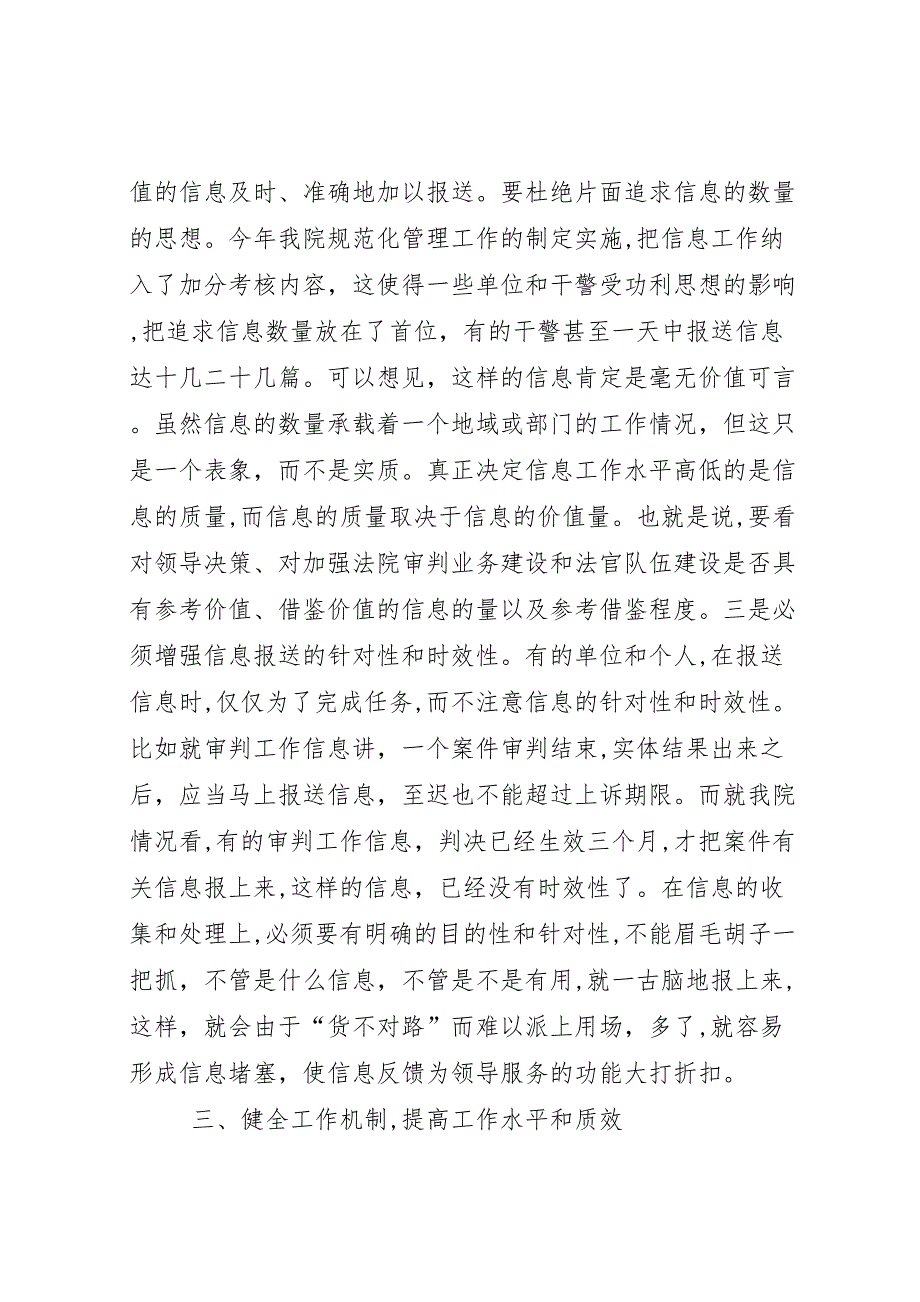 值的信息及时、准确地加以报送。要杜绝片面追求信息的数量
的思想。今年我院规范化管理工作的制定实施,把信息工作纳
入了加分考核内容，这使得一些单位和干警受功利思想的影响
,把追求信息数量放在了首位，有的干警甚至一天中报送信息
达十几二十几篇。可以想见，这样的信息肯定是毫无价值可言
。虽然信息的数量承载着一个地域或部门的工作情况，但这只
是一个表象，而不是实质。真正决定信息工作水平高低的是信
息的质量,而信息的质量取决于信息的价值量。也就是说,要看
对领导决策、对加强法院审判业务建设和法官队伍建设是否具
有参考价值、借鉴价值的信息的量以及参考借鉴程度。三是必
须增强信息报送的针对性和时效性。有的单位和个人,在报送
信息时,仅仅为了完成任务,而不注意信息的针对性和时效性。
比如就审判工作信息讲，一个案件审判结束,实体结果出来之
后，应当马上报送信息，至迟也不能超过上诉期限。而就我院
情况看,有的审判工作信息，判决已经生效三个月,才把案件有
关信息报上来,这样的信息，已经没有时效性了。在信息的收
集和处理上,必须要有明确的目的性和针对性,不能眉毛胡子一
把抓，不管是什么信息，不管是不是有用,就一古脑地报上来,
这样，就会由于“货不对路”而难以派上用场，多了,就容易
形成信息堵塞，使信息反馈为领导服务的功能大打折扣。
三、健全工作机制,提高工作水平和质效